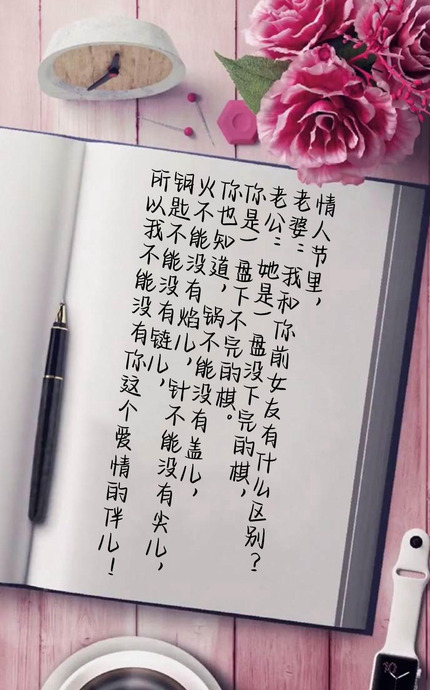 情人节里，
老婆：我和你前女友有什么区别？
老公：她是一盘没下完的棋，
你是一盘下不完的棋。
你也知道，锅不能没有盖儿，
火不能没有焰儿，
钥匙不能没有链儿，针不能没有尖儿，
所以我不能没有你这个爱情的伴儿！